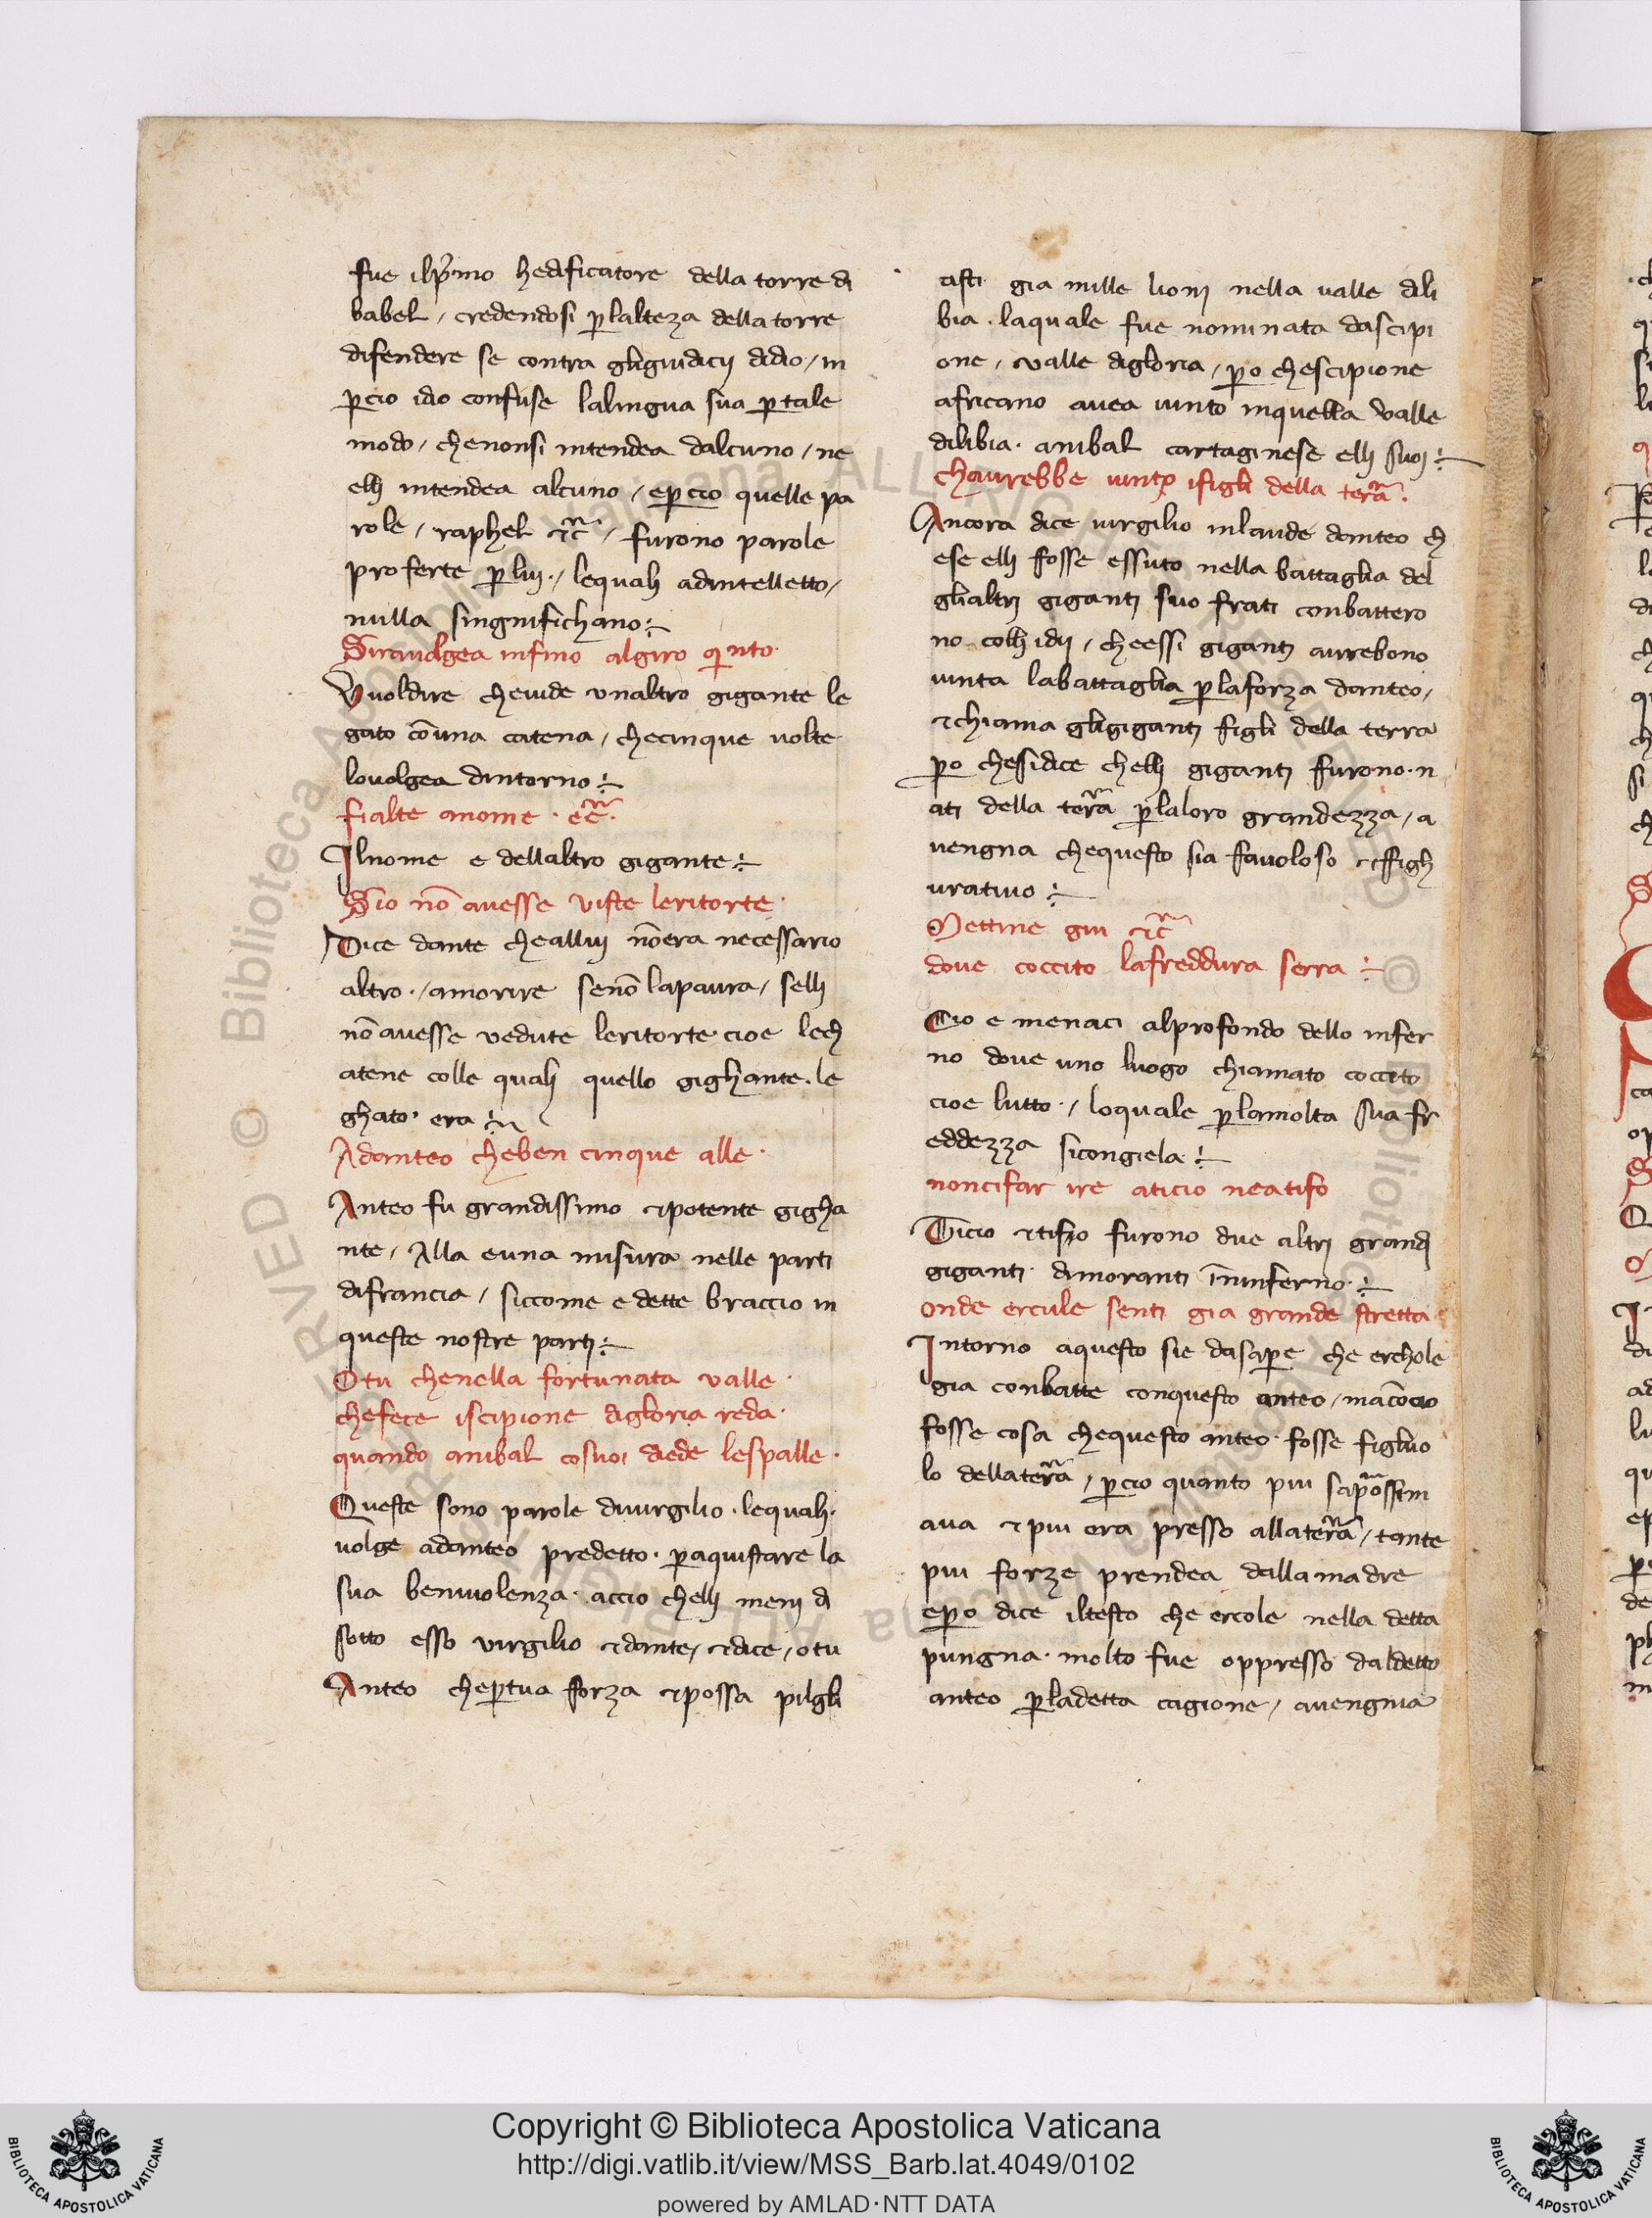 fue ilp̃mo hedificatore della torre di
babel / credendosi ꝑlalteza della torre
difendere se contra gligiudicij didio / in
ꝑcio idio confuse lalingua sua ꝑ tale
modo / chenonsi intendea dalcuno / ne
elli intendea alcuno / eꝑ cio quelle pa
role / raphel ⁊c̃ / furono parole
proferte ꝑ lui · / lequali adintelletto /
nulla singnifichano :-
Siraudgea infino algiro qinto ·
Vuoldire cheuide unaltro gigante le
gato cõuna catena / checinque uolte
louolgea dintorno :-
fialte anome · ec̃ ·
Ilnome e dellaltro gigante :-
Sio nõ auesse viste leritorte ·
Dice dante cheallui nõera necessario
altro · / amorire senõ lapaura / selli
nõ auesse vedute leritorte cioe lech
atene colle quali quello gighante · le
ghato · era :-
Adanteo cheben cinque alle ·
Anteo fu grandissimo ⁊potente gigha
nte / Alla euna misura nelle parti
difrancia / siccome e dette braccio in
queste nostre parti :-
O tu chenella fortunata valle ·
chefece iscipione digloria reda ·
quando anibal cosuoi diede lespalle ·
Queste sono parole diuirgilio · lequali ·
uolge adanteo predetto · ꝑaquistare la
sua beniuolenza · accio chelli meni di
sotto esso virgilio ⁊dante / ⁊dice / o tu
Anteo cheꝑtua forza ⁊possa pilgli
asti · gia mille lioni nella ualle dili
bia · laquale fue nominata dascipi
one / valle digloria / ꝑo chescipione
africano auea uinto inquella valle
dilibia · anibal cartaginese elli suoi :-
chaurebbe uinto ifigli della ter̃a ·
Ancora dice uirgilio inlaude danteo ch
ese elli fosse essuto nella battaglia del
glialtri giganti suo frati conbattero
no colli idij / cheessi giganti aurebono
uinta labattaglia ꝑlaforza danteo /
⁊chiama gligiganti figli della terra
ꝑo chesidice chelli giganti furono · n
ati della ter̃a ꝑlaloro grandezza / a
uengna chequesto sia fauoloso ⁊ffigh
uratiuo :-
Mettine giu ⁊c̃
doue coccito lafreddura serra :-
Cio e menaci alprofondo dello infer
no doue uno luogo chiamato coccito
cioe lutto · / loquale ꝑlamolta sua fr
eddezza sicongiela :-
noncifar ire aticio neatifo
Ticio ⁊tifo furono due altri grandi
giganti · dimoranti ĩninferno · :-
onde ercule senti gia grande stretta ·
Intorno aquesto sie dasaꝑe che erchole
gia conbatte conquesto anteo / macõcio
fosse cosa chequesto anteo · fosse figliuo
lo dellater̃a / ꝑcio quanto piu sap̃ossim
aua ⁊piu era presso allater̃a / tante
piu forze prendea dallamadre
eꝑo dice iltesto che ercole nella detta
pungna · molto fue oppresso daldetto
anteo ꝑladetta cagione / auengnia
Copyright © Biblioteca Apostolica Vaticana
http://digi.vatlib.it/view/MSS_Barb.lat.4049/0102
powered by AMLAD·NTT DATA